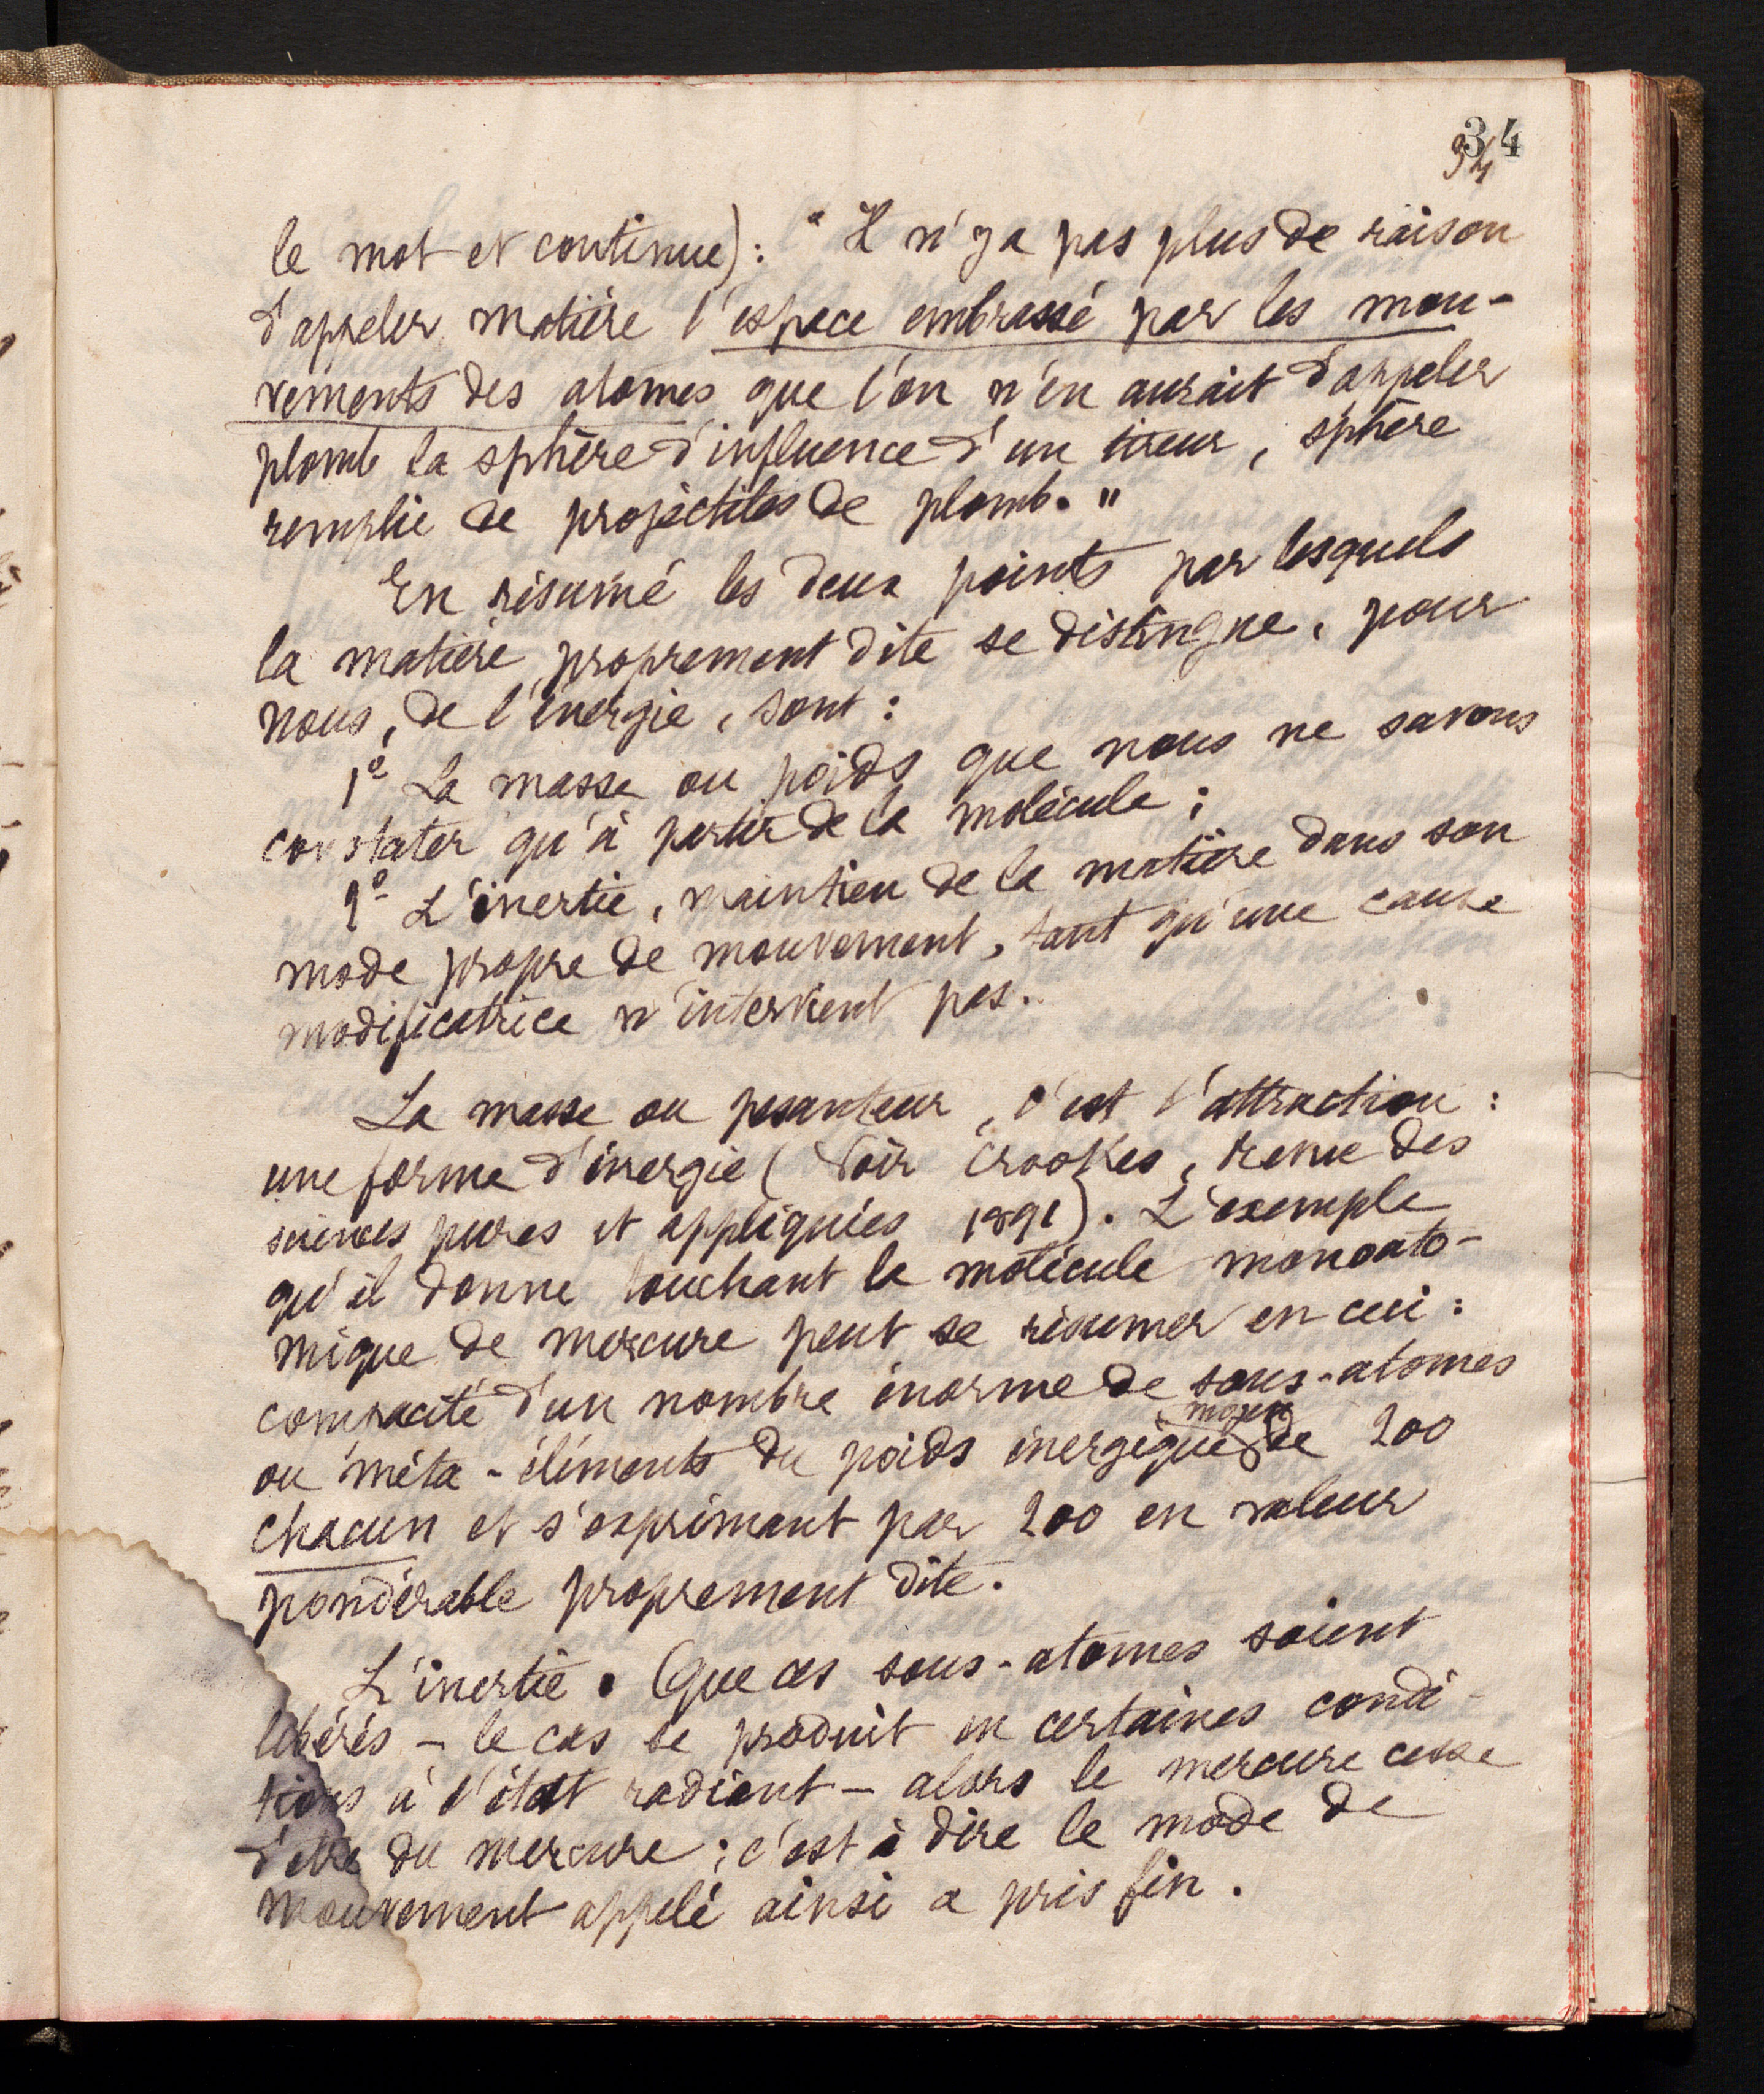 34
34
le mot et continue) : " Il n'y a pas plus de raison
d'appeler matière l'espace embrassé par les mou-
vements des atomes que l'on n'en aurait d'appeler
plomb la sphère d'influence d'un tireur, sphère
remplie de projectiles de plomb. "
En résumé les deux points par lesquels
la matière proprement dite se distingue, pour
nous, de l'énergie, sont :
1º La masse ou poids que nous ne savons
constater qu'à partir de la molécule ;
2º L'inertie, maintien de la matière dans son
mode propre de mouvement, tant qu'une cause
modificatrice n'intervient pas.
La masse ou pesanteur, c'est l'attraction :
une forme d'énergie (Voir Crookes, revue des
sciences pures et appliquées 1891). L'exemple
qu'il donne touchant la molécule monoato-
mique de mercure peut se résumer en ceci :
compacité d'un nombre énorme de sous-atomes
moyen
ou méta-éléments du poids énergique de 200
chacun et s'exprimant par 200 en valeur
pondérable proprement dite.
L'inertie. Que ces sous-atomes soient
libérés – le cas se produit en certaines condi-
tions à l'état radiant – alors le mercure cesse
d'être du mercure ; c'est à dire le mode de
mouvement appelé ainsi a pris fin.